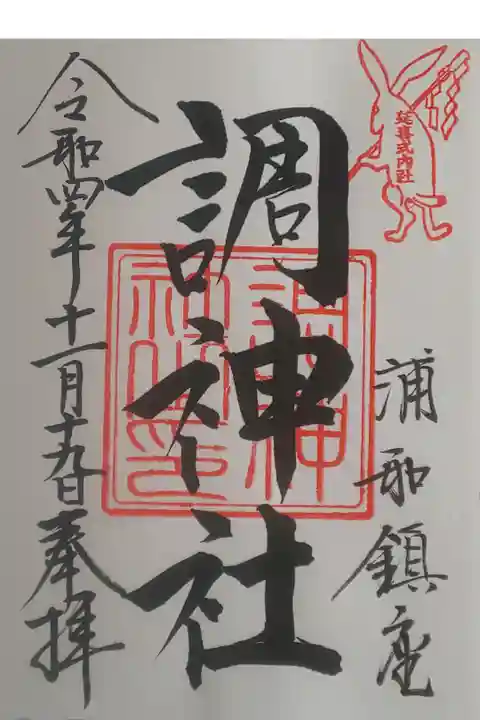 延喜式内社
浦和鎮座
調神社
調神社之印
令和四年十一月十九日奉拝